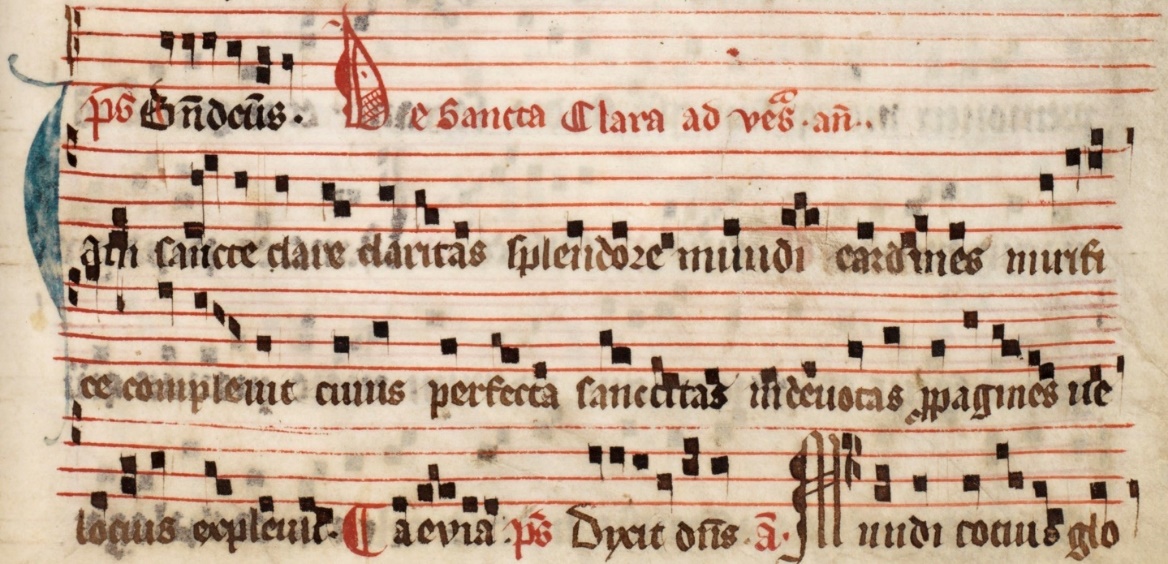 ps Bn̄dcūs. De Sancta Clara ad ves̄. an̄.
Iam sancte clare claritas splendore mundi cardines mirifi
ce compleuit cuius perfecta sanctitas indeuotas ꝓpagines ue
locius expleuit. Eaevia ps Dyxit dn̄s. a. Mundi tocius glo